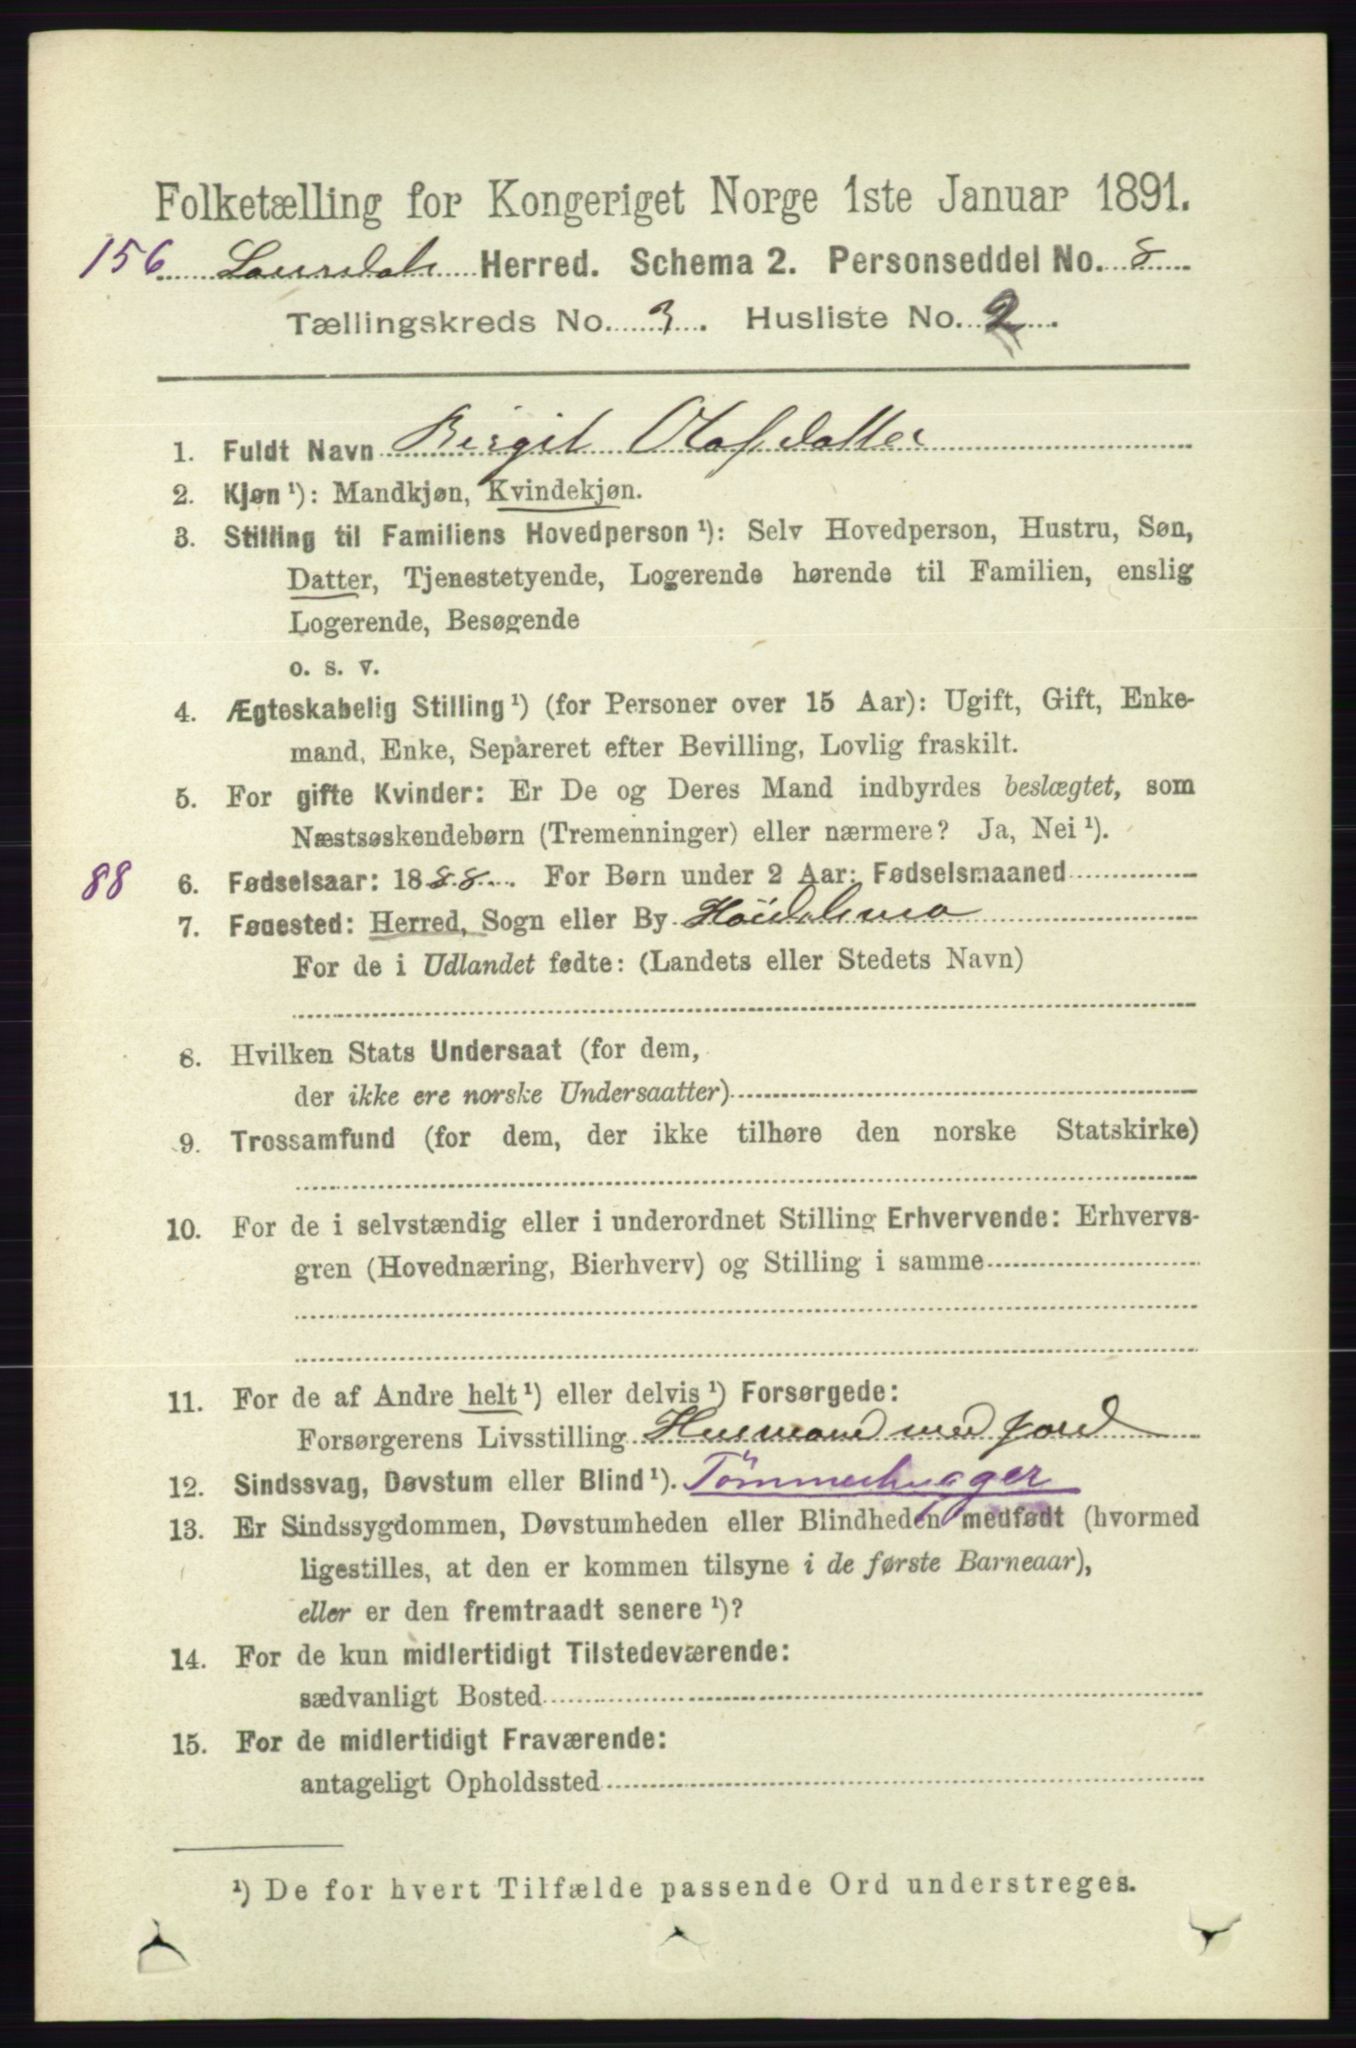 Folketælling for Kongeriget Norge 1ste Januar 1891.
156 Laurdal Herred. Schema 2. Personseddel No. 8
Tællingskreds No. 3. Husliste No. 2.
1. Fuldt Navn Birgit Olafsdatter
2. Kjøn ¹): Mandkjøn, Kvindekjøn.
3. Stilling til Familiens Hovedperson ¹): Selv Hovedperson, Hustru, Søn,
Datter, Tjenestetyende, Logerende hørende til Familien, enslig
Logerende, Besøgende
o. s. v.
4. Ægteskabelig Stilling ¹) (for Personer over 15 Aar): Ugift, Gift, Enke-
mand, Enke, Separeret efter Bevilling, Lovlig fraskilt.
5. For gifte Kvinder: Er De og Deres Mand indbyrdes beslægtet, som
Næstsøskendebørn (Tremenninger) eller nærmere? Ja, Nei ¹).
88 6. Fødselsaar: 1888. For Børn under 2 Aar: Fødselsmaaned
7. Fødested: Herred, Sogn eller By Höidalsmo
For de i Udlandet fødte: (Landets eller Stedets Navn)
8. Hvilken Stats Undersaat (for dem,
der ikke ere norske Undersaatter)
9. Trossamfund (for dem, der ikke tilhøre den norske Statskirke)
10. For de i selvstændig eller i underordnet Stilling Erhvervende: Erhvervs-
gren (Hovednæring, Bierhverv) og Stilling i samme
11. For de af Andre helt ¹) eller delvis ¹) Forsørgede:
Forsørgerens Livsstilling Husmand med jord
12. Sindssvag, Døvstum eller Blind ¹). Tömmerhugger
13. Er Sindssygdommen, Døvstumheden eller Blindheden medfødt (hvormed
ligestilles, at den er kommen tilsyne i de første Barneaar),
eller er den fremtraadt senere ¹)?
14. For de kun midlertidigt Tilstedeværende:
sædvanligt Bosted
15. For de midlertidigt Fraværende:
antageligt Opholdssted
¹) De for hvert Tilfælde passende Ord understreges.